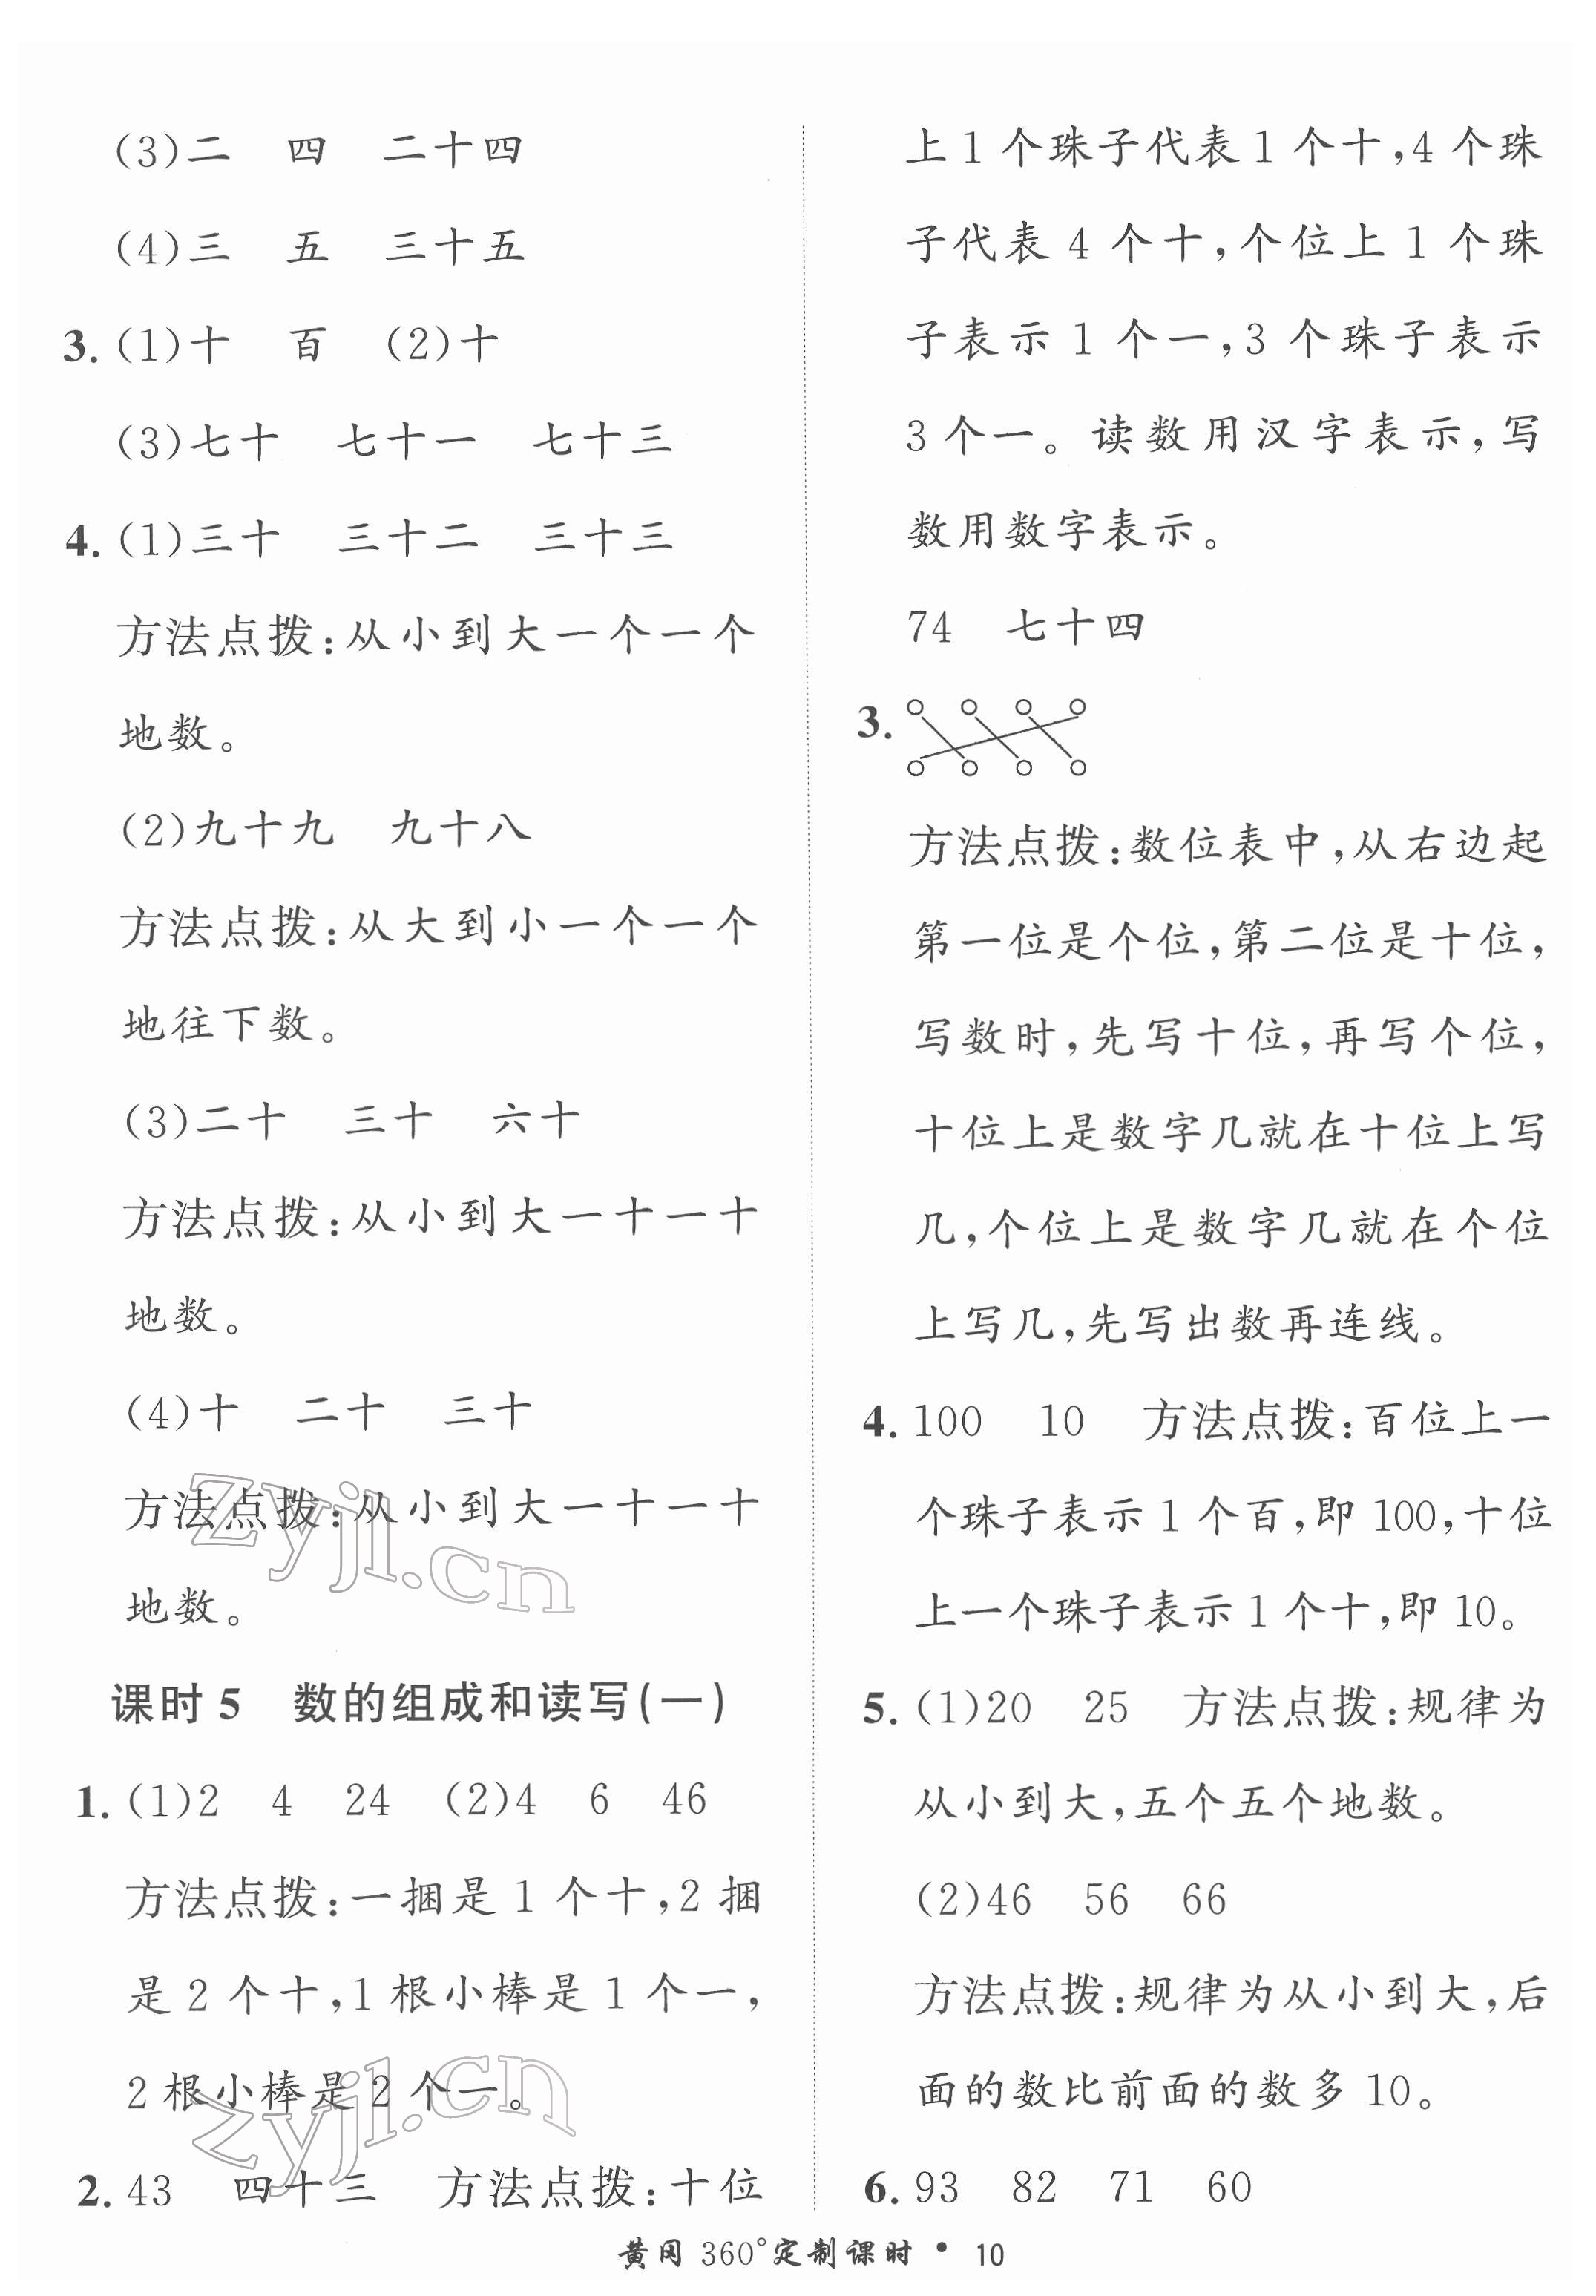 (3)二 四 二十四
(4)三 五 三十五
3. (1)十 百 (2)十
(3)七十 七十一 七十三
4. (1)三十 三十二 三十三
方法点拨:从小到大一个一个
地数。
(2)九十九 九十八
方法点拨:从大到小一个一个
地往下数。
(3)二十 三十 六十
方法点拨:从小到大一十一十
地数。
(4)十 二十 三十
方法点拨:从小到大一十一十
地数。
zyjl.cn
课时 5 数的组成和读写(一)
1. (1)2 4 24 (2)4 6 46
方法点拨:一捆是 1 个十,2 捆
是 2 个十,1 根小棒是 1 个一,
2 根小棒是 2 个一。
zyjl.cn
2. 43 四十三 方法点拨:十位
上 1 个珠子代表 1 个十,4 个珠
子代表 4 个十,个位上 1 个珠
子表示 1 个一,3 个珠子表示
3 个一。读数用汉字表示,写
数用数字表示。
74 七十四
3.
方法点拨:数位表中,从右边起
第一位是个位,第二位是十位,
写数时,先写十位,再写个位,
十位上是数字几就在十位上写
几,个位上是数字几就在个位
上写几,先写出数再连线。
4. 100 10 方法点拨:百位上一
个珠子表示 1 个百,即 100,十位
上一个珠子表示 1 个十,即 10。
5. (1)20 25 方法点拨:规律为
从小到大,五个五个地数。
(2)46 56 66
方法点拨:规律为从小到大,后
面的数比前面的数多 10。
6. 93 82 71 60
黄冈 360°定制课时 • 10